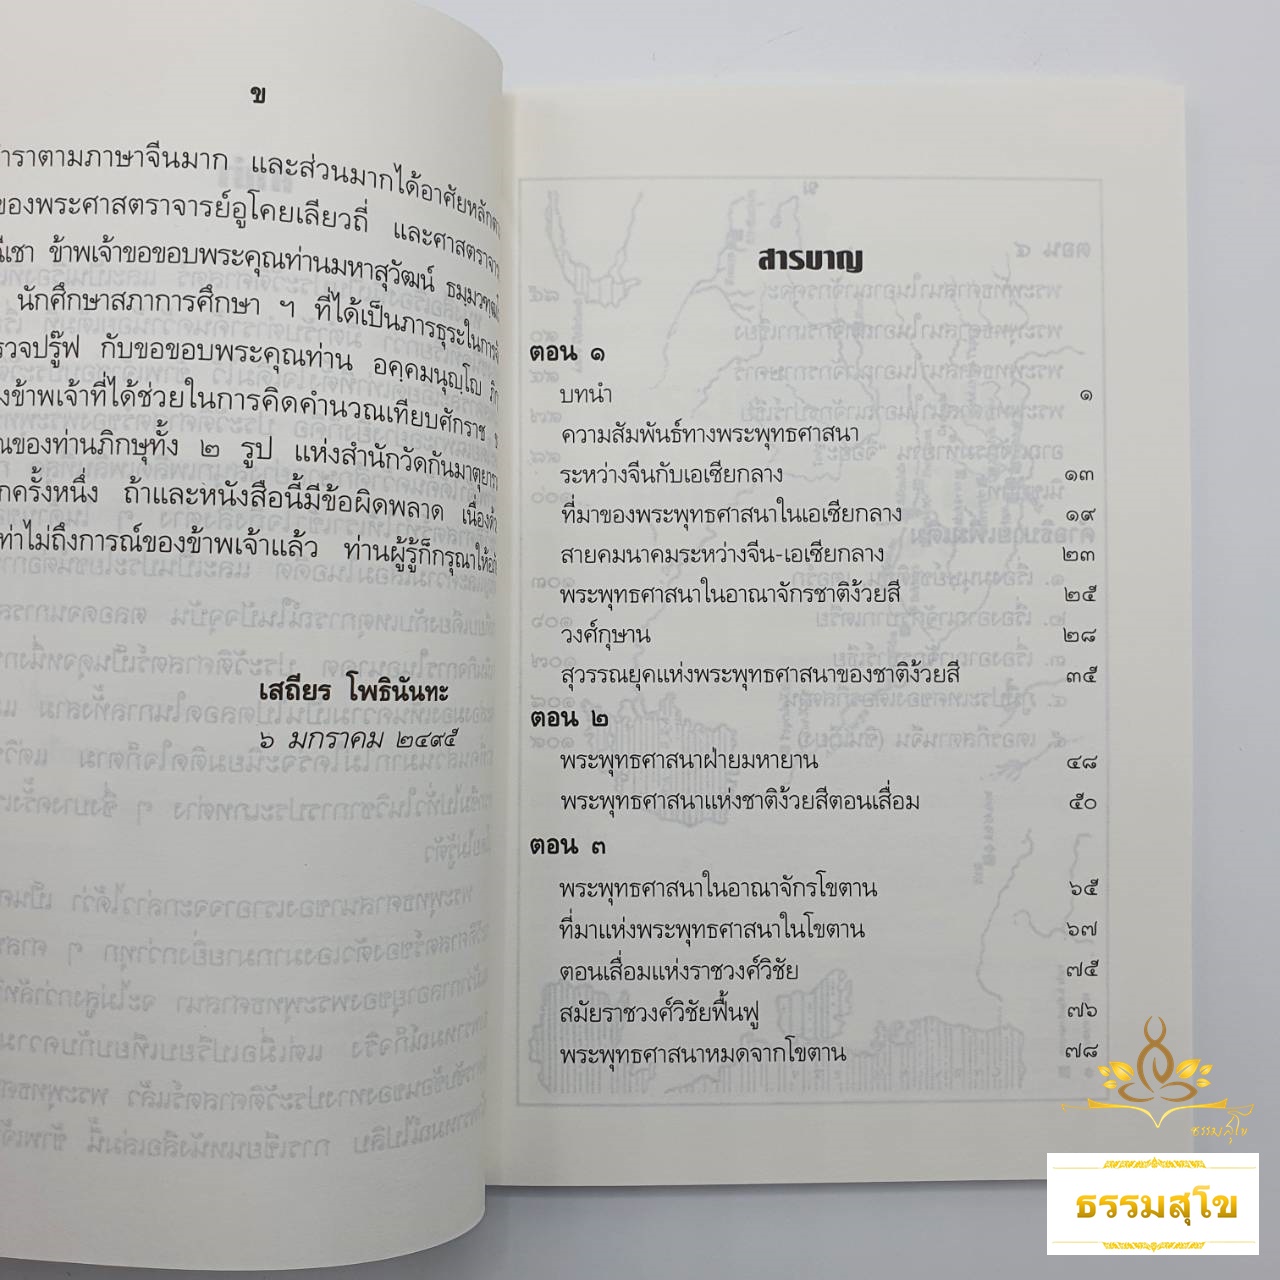 ข
ตามภาษาจีนมาก และส่วนมากได้อาศัยหลัก
ของพระศาสตราจารย์อูโคยเลียวถี่ และ
ข้าพเจ้าขอขอบพระคุณท่านมหาสุวัฒน์
นักศึกษาสภาการศึกษา ฯ ที่ได้เป็นภารธุระในการ
ปรู๊ฟ กับขอขอบพระคุณท่าน อคฺคมนุญฺโญ
ข้าพเจ้าที่ได้ช่วยในการคิดคำนวณเทียบศักราช
ของท่านภิกษุทั้ง ๒ รูป แห่งสำนักวัดกันมาตุยาราม
ครั้งหนึ่ง ถ้าและหนังสือนี้มีข้อผิดพลาด
เท่าไม่ถึงการณ์ของข้าพเจ้าแล้ว ท่านผู้รู้ก็กรุณาให้
เสถียร โพธินันทะ
๖ มกราคม ๒๔๙๕
สารบาญ
ตอน ๑
บทนำ ๑
ความสัมพันธ์ทางพระพุทธศาสนา
ระหว่างจีนกับเอเซียกลาง ๑๓
ที่มาของพระพุทธศาสนาในเอเซียกลาง ๑๙
สายคมนาคมระหว่างจีน-เอเซียกลาง ๒๓
พระพุทธศาสนาในอาณาจักรชาติง้วยสี ๒๕
วงศ์กุษาน ๒๘
สุวรรณยุคแห่งพระพุทธศาสนาของชาติง้วยสี ๓๕
ตอน ๒
พระพุทธศาสนาฝ่ายมหายาน ๔๘
พระพุทธศาสนาแห่งชาติง้วยสีตอนเสื่อม ๕๐
ตอน ๓
พระพุทธศาสนาในอาณาจักรโขตาน ๖๕
ที่มาแห่งพระพุทธศาสนาในโขตาน ๖๗
ตอนเสื่อมแห่งราชวงศ์วิชัย ๗๕
สมัยราชวงศ์วิชัยฟื้นฟู ๗๖
พระพุทธศาสนาหมดจากโขตาน ๗๘
ธรรมสุโข
ธรรมสุโข